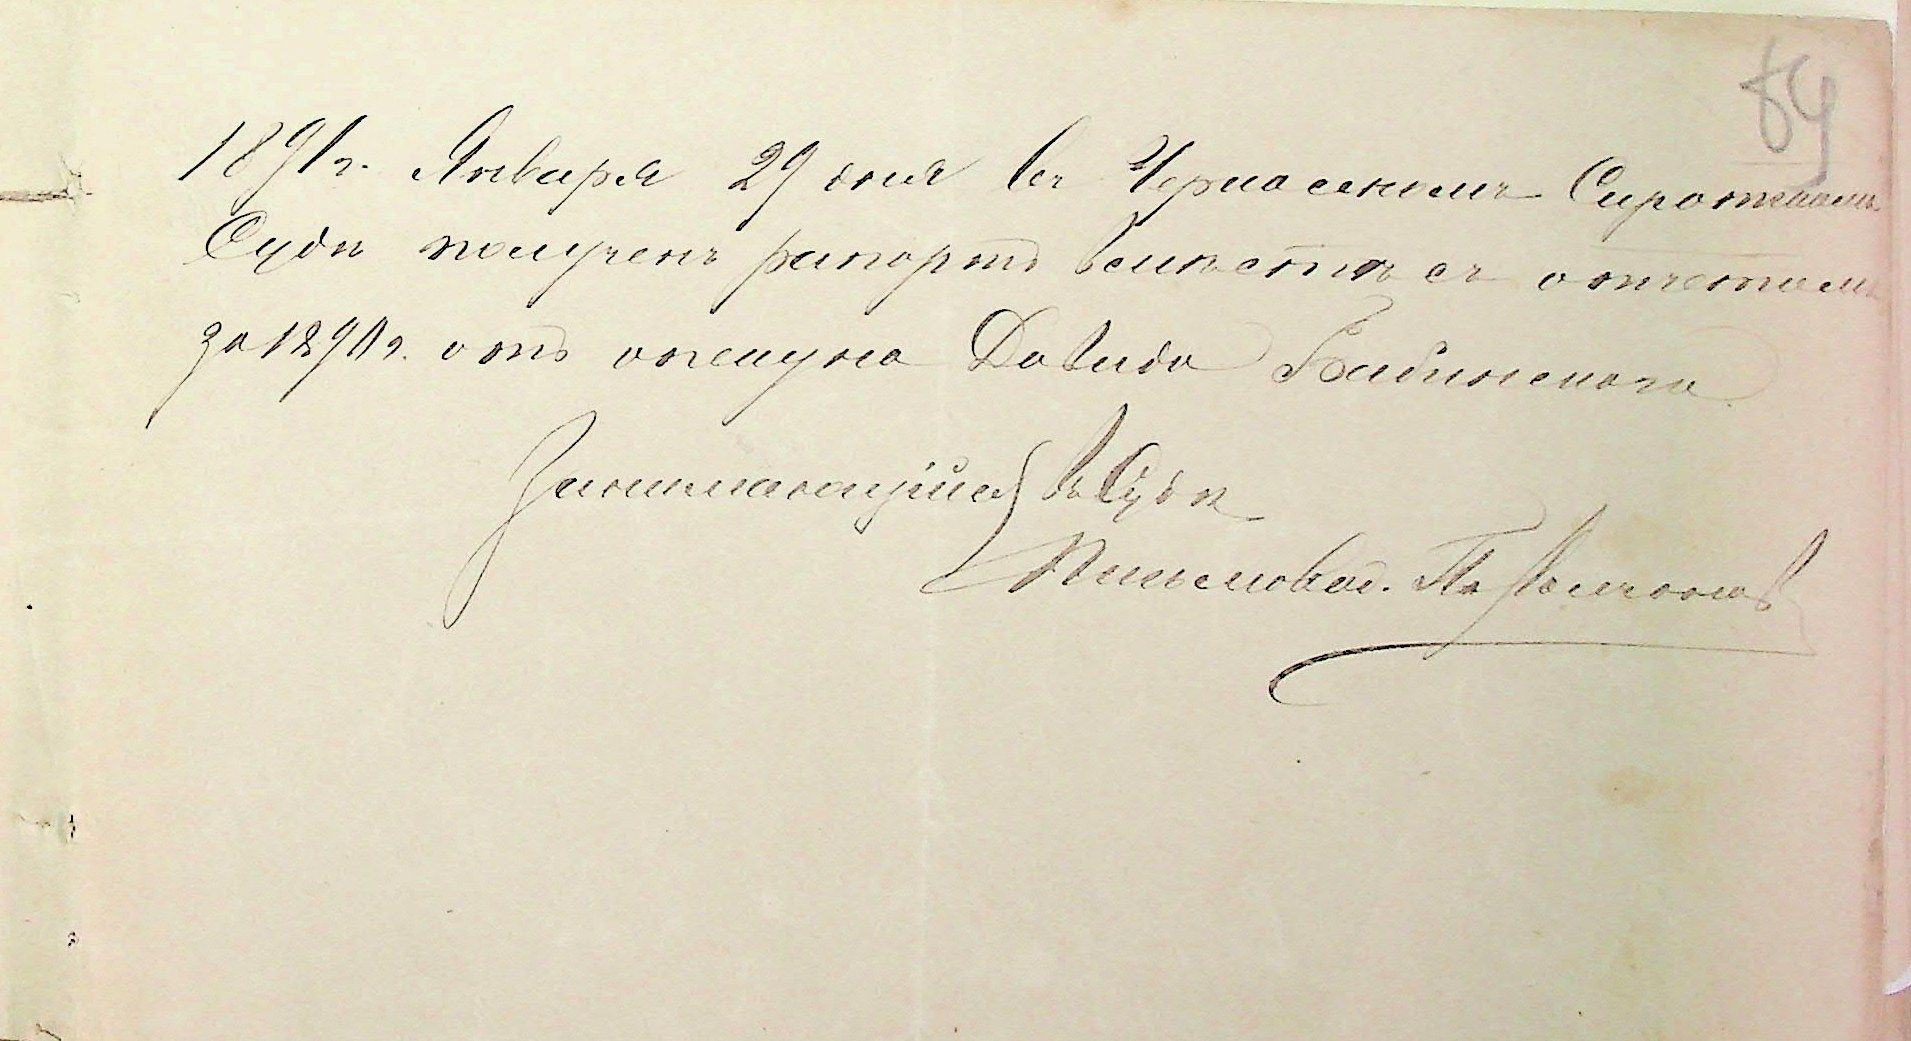 89
1891 г. Января 29 дня въ Черкасскомъ Сиротскомъ
Судѣ полученъ рапортъ вмѣстѣ съ отчетомъ
за 1890 г. отъ опекуна Давида Бабинскаго
Занимающійся въ Судѣ
Письмовод.